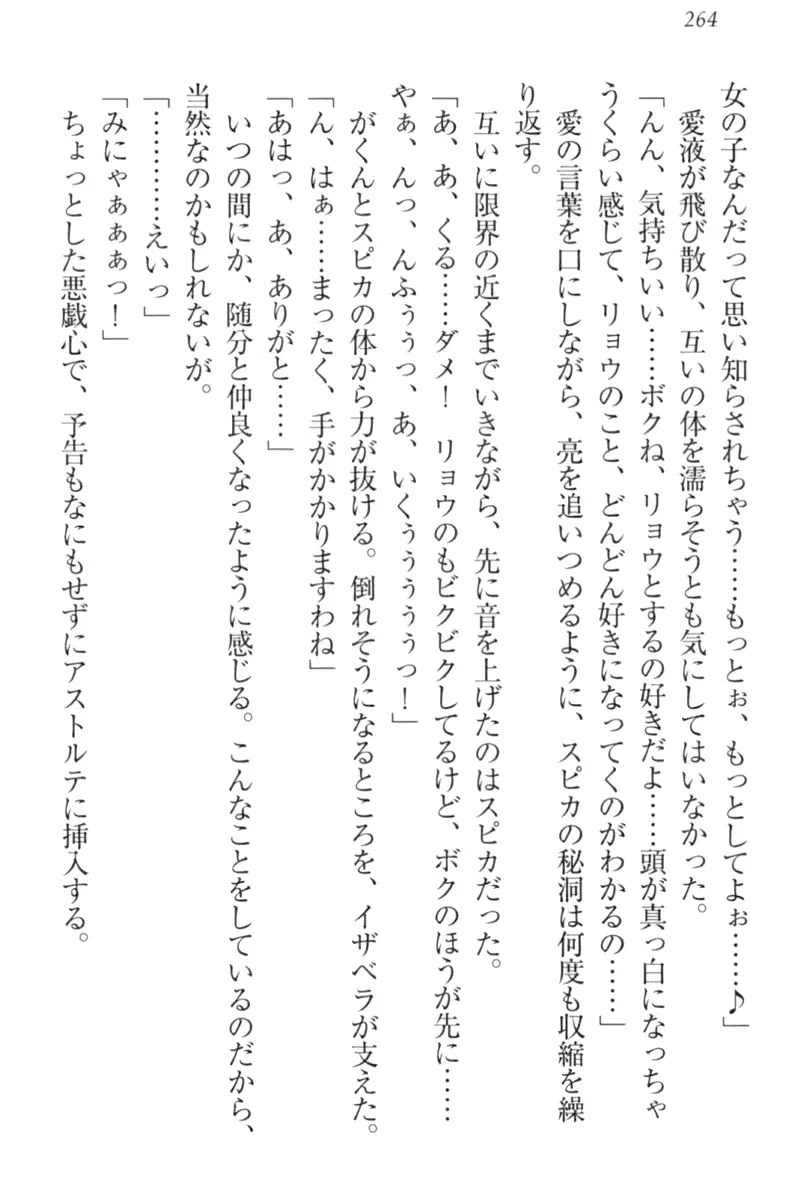 264
女の子なんだって思い知らされちゃう……もっとぉ、もっとしてよぉ……♪」
愛液が飛び散り、互いの体を濡らそうとも気にしてはいなかった。
「んん、気持ちいい……ボクね、リョウとするの好きだよ……頭が真っ白になっちゃ
うくらい感じて、リョウのこと、どんどん好きになってくのがわかるの……」
愛の言葉を口にしながら、亮を追いつめるように、スピカの秘洞は何度も収縮を繰
り返す。
互いに限界の近くまでいきながら、先に音を上げたのはスピカだった。
「あ、あ、くる……ダメ！　リョウのもビクビクしてるけど、ボクのほうが先に……
やぁ、んっ、んふぅぅっ、あ、いくぅぅぅぅぅっ！」
がくんとスピカの体から力が抜ける。倒れそうになるところを、イザベラが支えた。
「ん、はぁ……まったく、手がかかりますわね」
「あはっ、あ、ありがと……」
いつの間にか、随分と仲良くなったように感じる。こんなことをしているのだから、
当然なのかもしれないが。
「…………えいっ」
「みにゃぁぁぁっ！」
ちょっとした悪戯心で、予告もなにもせずにアストルテに挿入する。